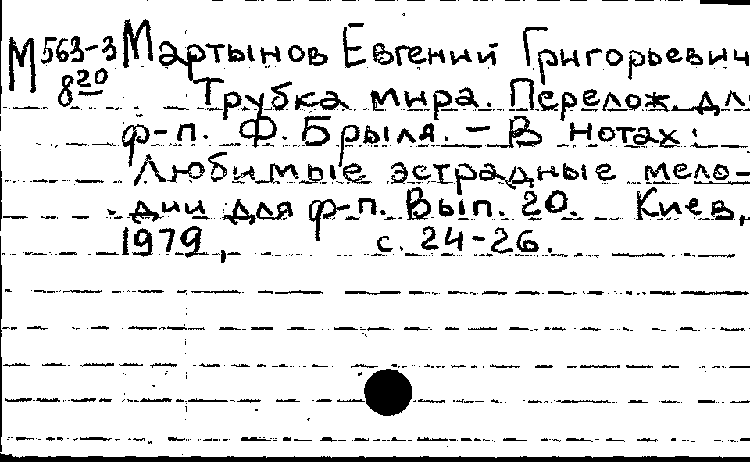 М 563-3 Мартынов Евгений Григорьевич
8 20 Трубка мира. Перелож. дл
ф-п. Ф. Брыля. - В нотах:
Любимые эстрадные мело-
дии для ф-п. Вып. 20. Киев,
1979, с. 24-26.